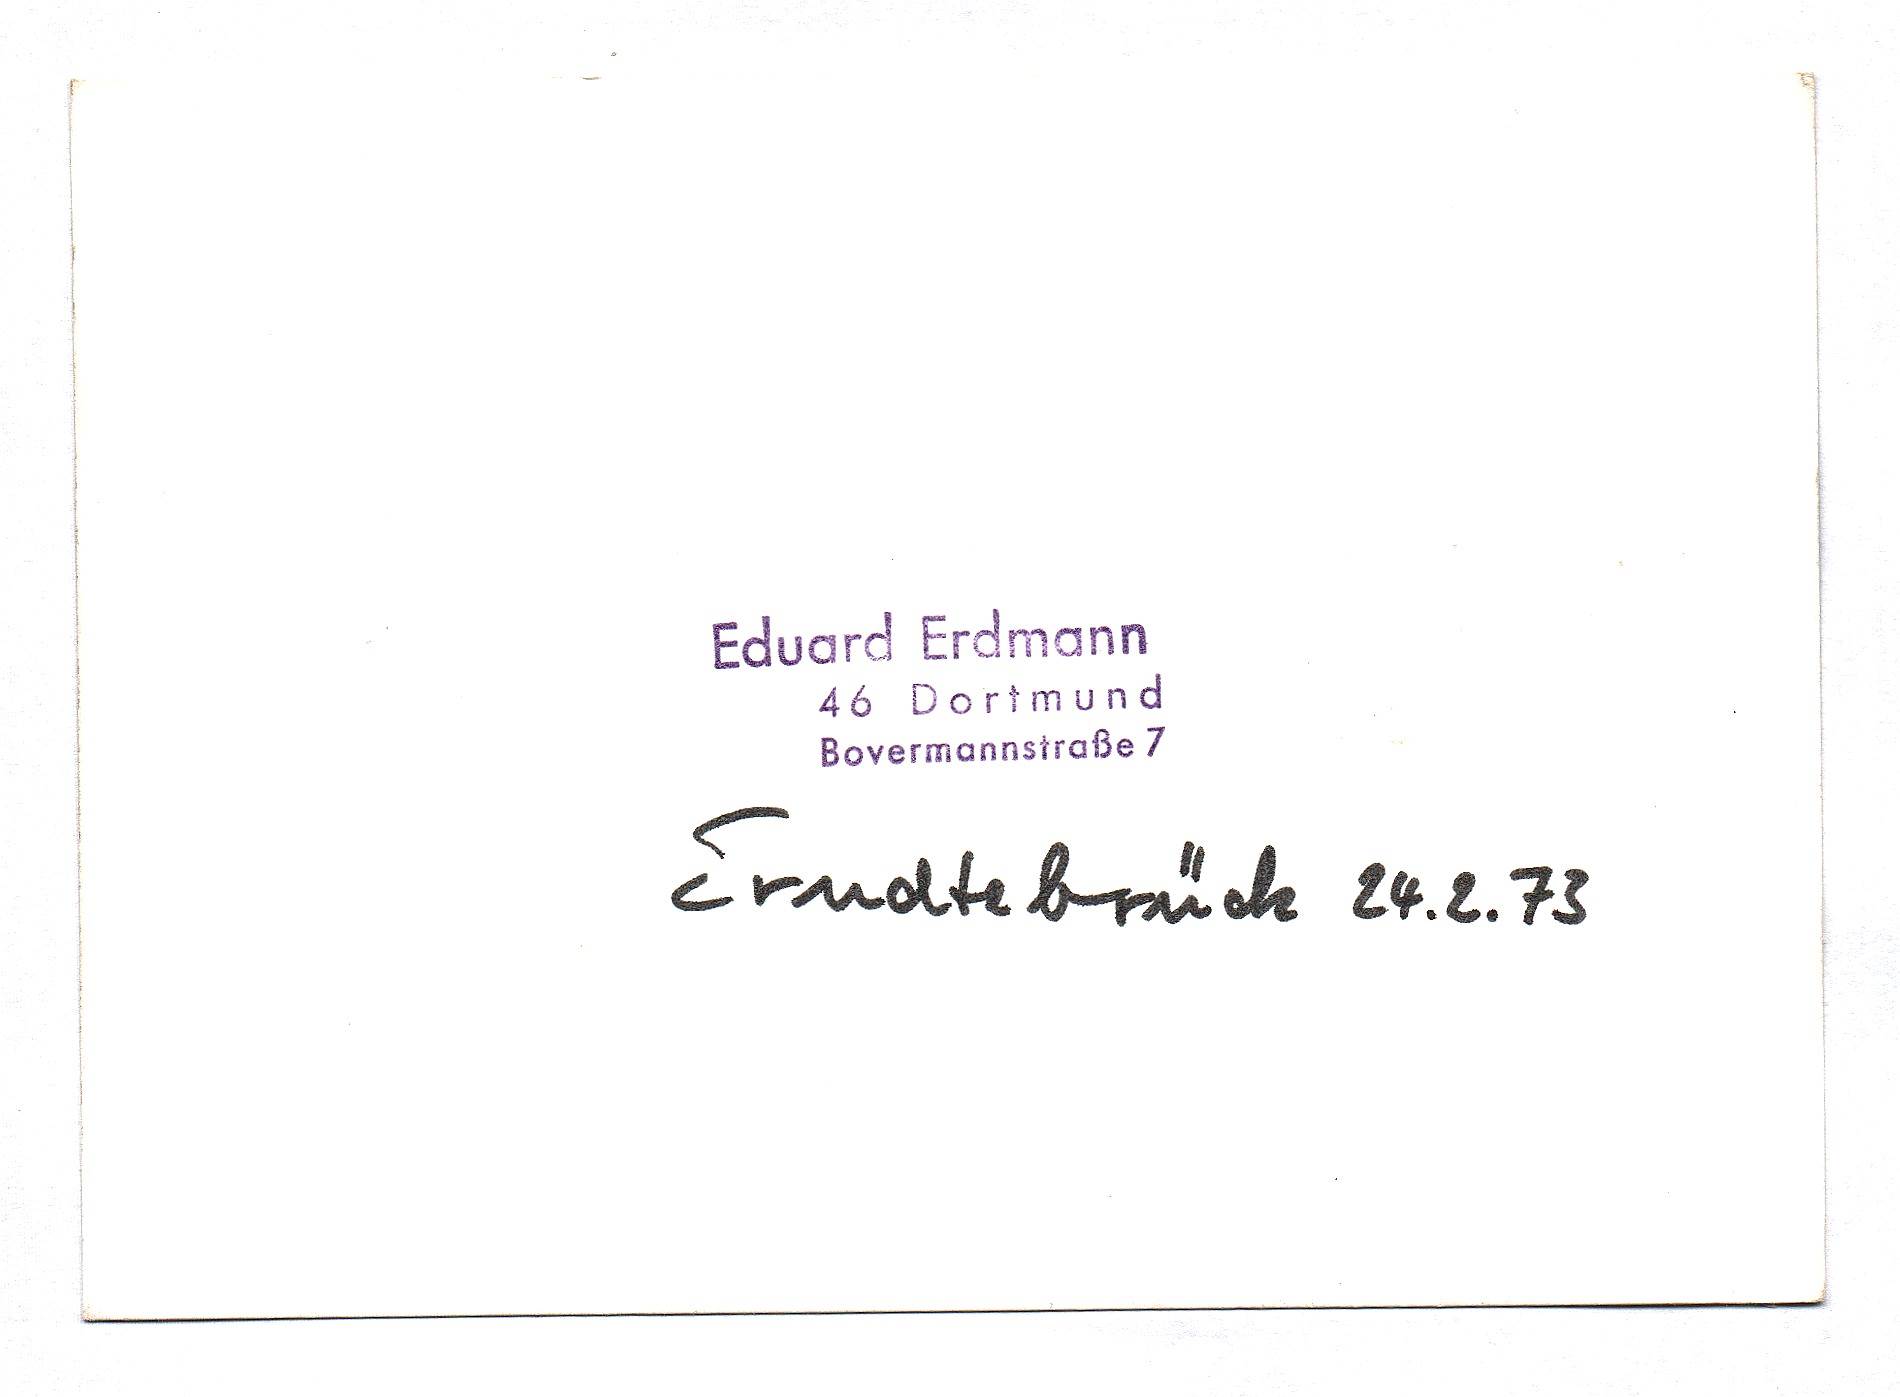 Eduard Erdmann
46 Dortmund
Bovermannstraße 7
Erndtebrück 24.2.73